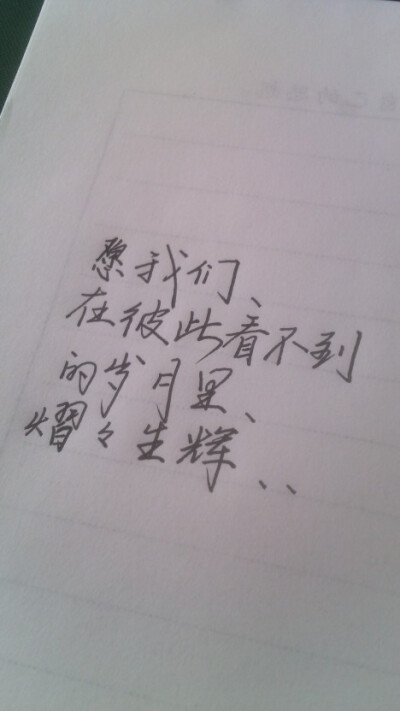 愿我们、
在彼此看不到
的岁月里、
熠々生辉、、